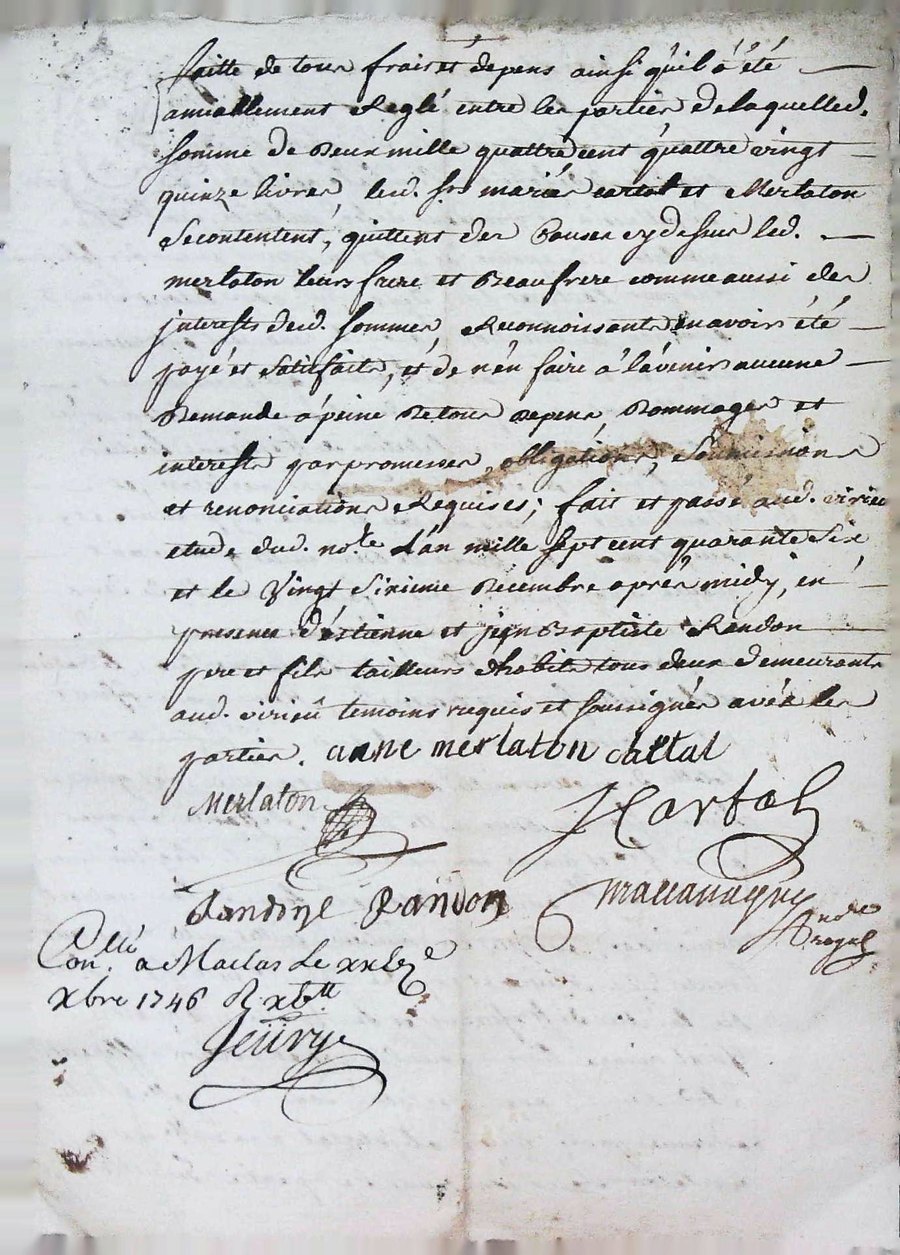 faitte de tous frais et depens ainsi quil a été
amiablement Reglé entre les parties de laquelled.
somme de Deux mille quattre cent quattre vingt
quinze livres, lesd. srs mariés cartal et Merlaton
se contentent, quittent des Causes cydessus led.
merlaton leurs frere et Beaufrere comme aussi des
interests desd. sommes, Reconnoissants en avoirs été
payé et satisfaits, et de n'en faire a l'évenirs aucune
Demande a peine De tous Depens, Dommages et
interests par promesses, obligations, soumissions
et renonciations Requises; fait et passé aud. virieu
etude dud. nore. L'an mille sept cent quarante six
et le Vingt sixieme Décembre après midy, en
presence d'éstienne et jean Baptiste Randon
pere et fils tailleurs d'habits tous deux demeurants
aud. virieu temoins requis et soussignés avéc les
parties. anne merlaton cartal
Merlaton
J Cartal
Randon
nore
Royal
Conllé a Maclas Le
xbre 1746 R